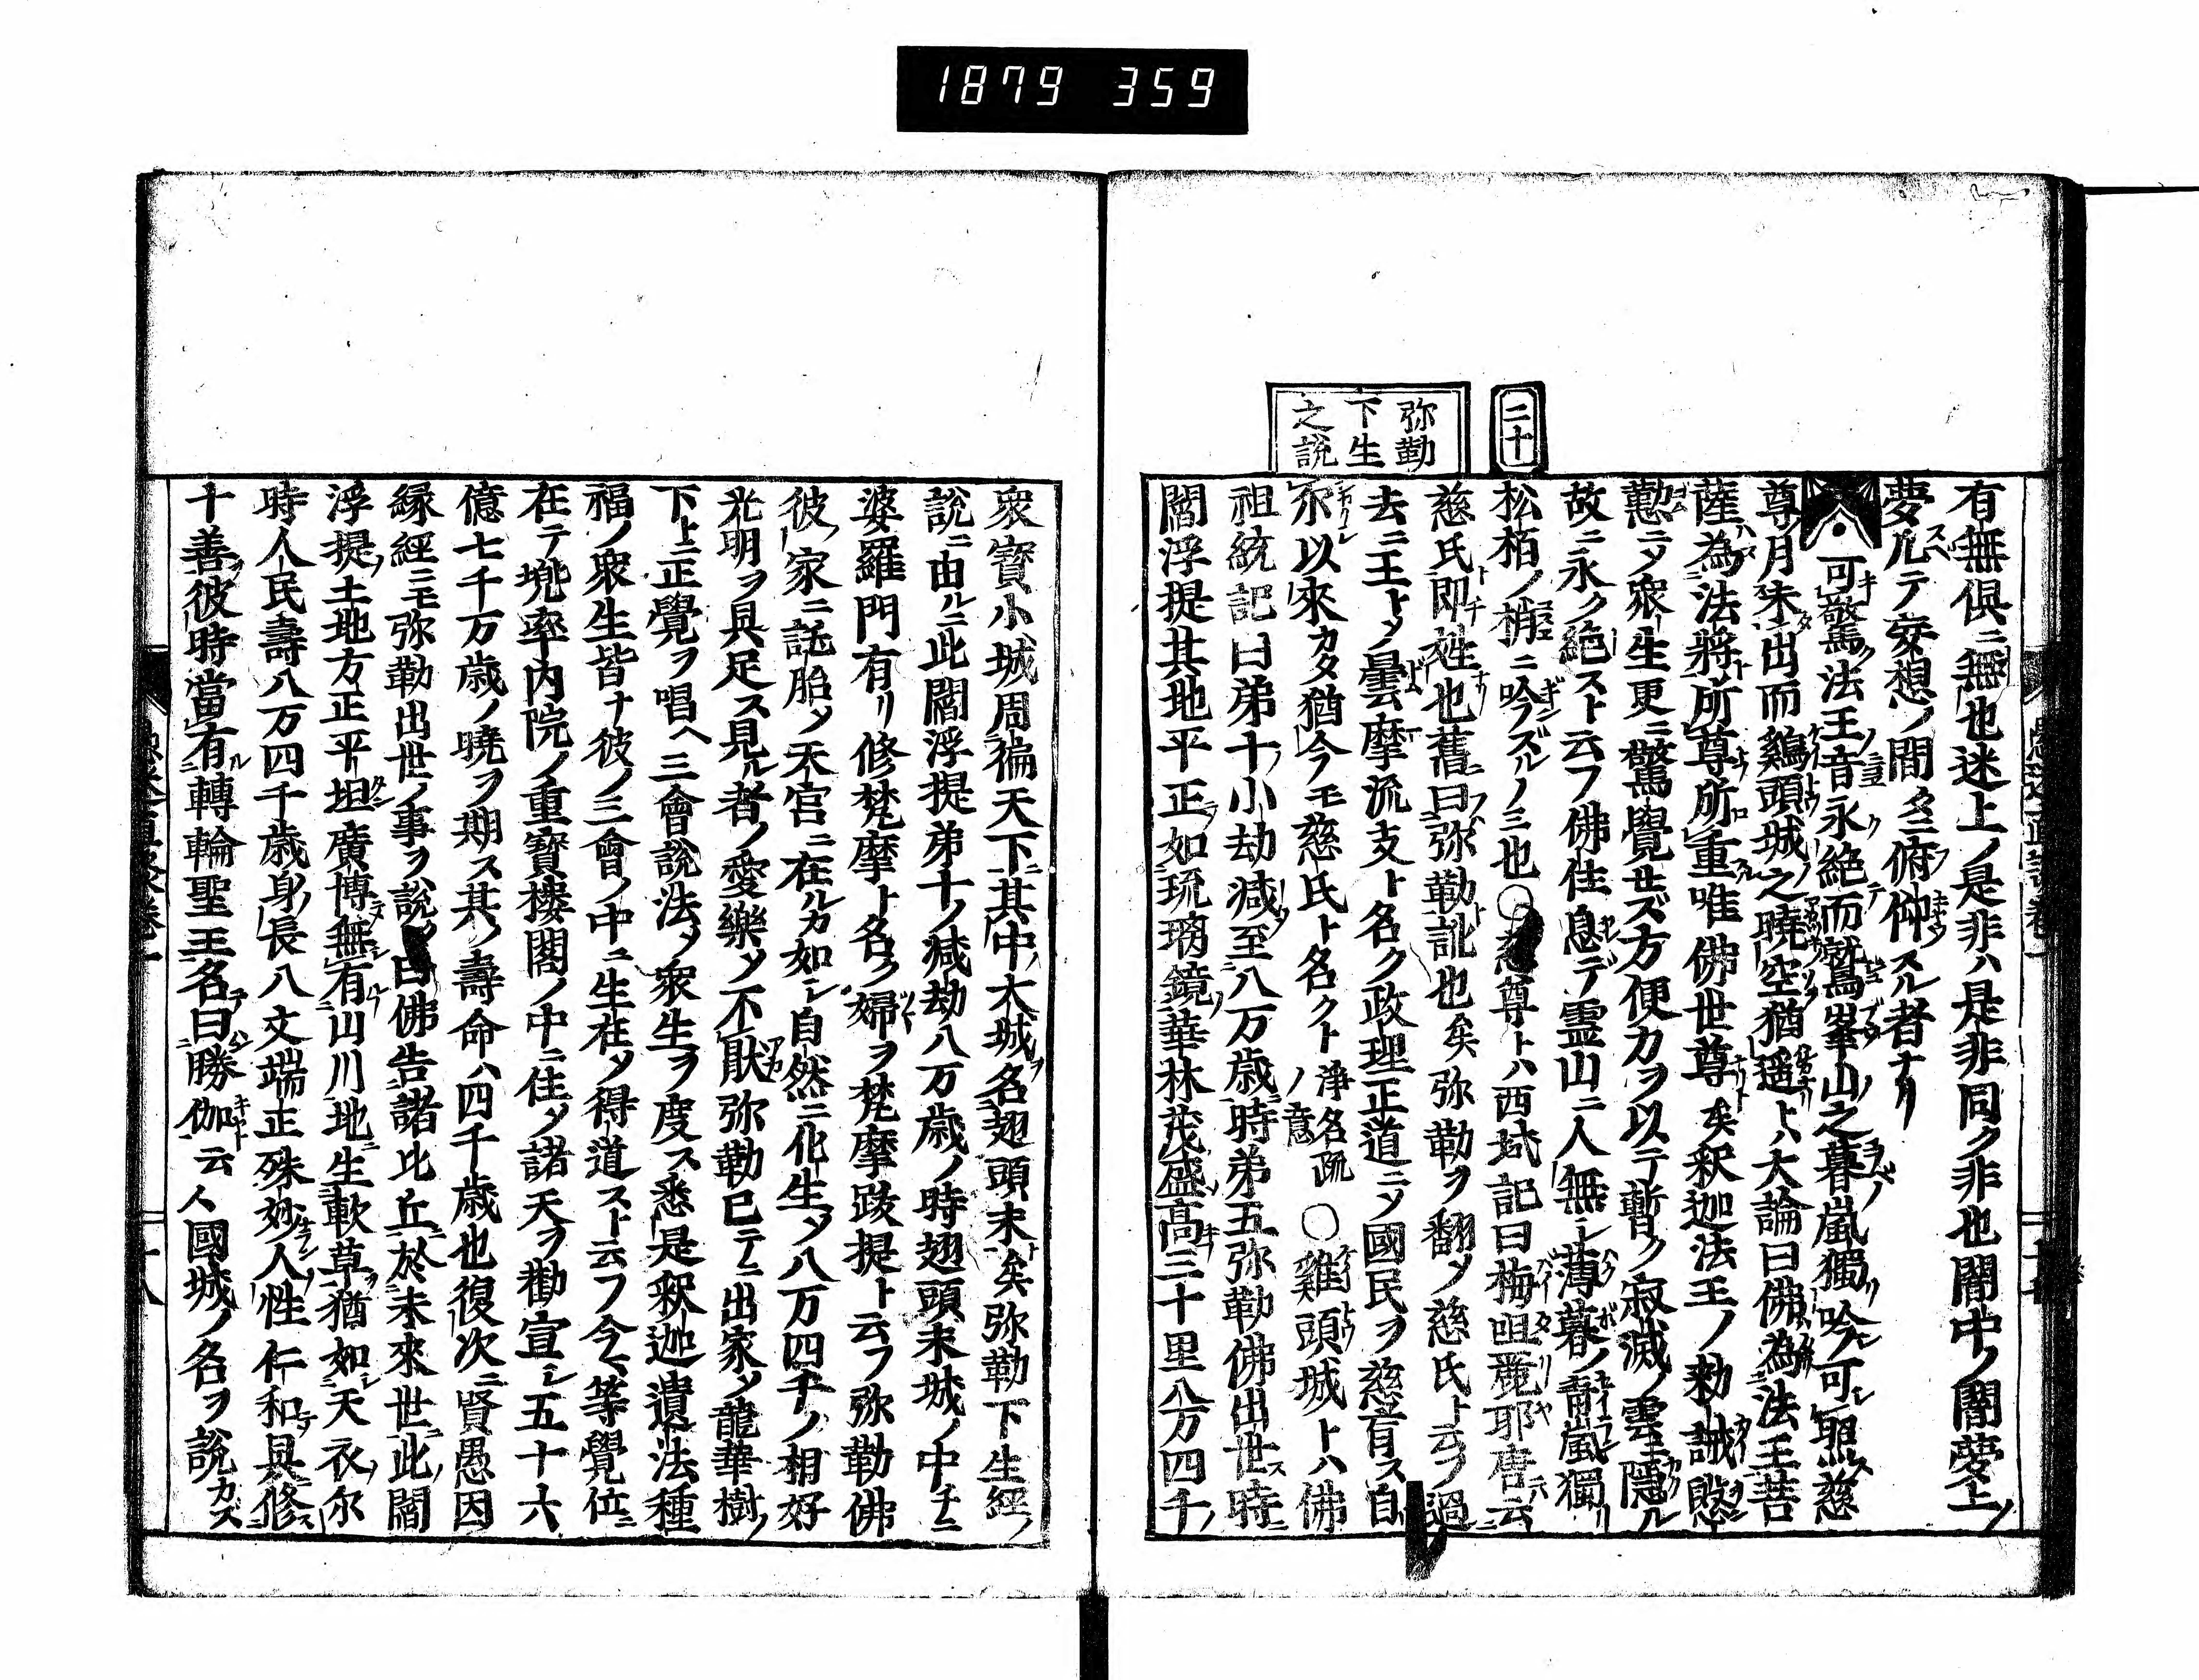 1879 359
二十
弥勒
下生
之説
有無倶ニ無也迷上ノ是非ハ是非同ク非也闇中ノ闇夢上ノ
夢スヘテ妄想ノ間タニ俯仰スル者ナリ
可驚法王音永絶而鷲峯山之暮嵐獨吟可照慈
尊ノ月未出而鷄頭城之曉空猶遥トハ大論曰佛為法王菩
薩為法將所尊所重唯佛世尊矣釈迦法王ノ勅誠慇
懃ニメ衆生更ニ驚覺セズ方便力ヲ以テ暫ク寂滅ノ雲ニ隠ル
故ニ永ク絶スト云フ佛住息デ霊山ニ人無シ薄暮ノ青嵐獨リ
松栢ノ梢ニ吟ズルノミ也○慈尊トハ西域記曰梅呾麗耶唐云
慈氏即姓也舊曰弥勒訛也矣弥勒ヲ翻メ慈氏ト云フ過
去ニ王トメ曇摩流支ト名ク政理正道ニメ國民ヲ慈育ス自
尓以來カタ猶今フモ慈氏ト名クト淨名疏ノ意○雞頭城トハ佛
祖統記曰弟十小劫減至八万歳時弟五弥勒佛出世時
閻浮提其地平正如琉璃鏡華林茂盛高三十里八万四千
衆寳小城周徧天下其中大城名翅頭末矣弥勒下生經ノ
説ニ由ルニ此閻浮提弟十ノ減劫八万歳ノ時翅頭末城ノ中チニ
婆羅門有リ修梵摩ト名ク婦ヲ梵摩跋提ト云フ弥勒佛
彼家ニ託胎メ天宮ニ在ルカ如シ自然ニ化生メ八万四千ノ相好
光明ヲ具足ス見ル者ノ愛樂メ不猒弥勒已テニ出家メ龍華樹ノ
下ニ正覺ヲ唱ヘ三會説法メ衆生ヲ度ス悉是釈迦遺法種
福ノ衆生皆ナ彼ノ三會ノ中ニ生在メ得道スト云フ今ハ等覺位ニ
在テ兜率内院ノ重寳樓閣ノ中ニ住メ諸天ヲ勸宣シ五十六
億七千万歳ノ曉ヲ期ス其ノ壽命ハ四千歳也復次ニ賢愚因
縁經ニモ弥勒出世ノ事ヲ説曰佛告諸比丘於未來世此閻
浮提土地方正平坦廣博無有山川地生軟草猶如天衣尓
時人民壽八万四千歳身長八丈端正殊妙人性仁和具修
十善彼時當有轉輪聖王名曰勝伽云人國城ノ名ヲ説カズ